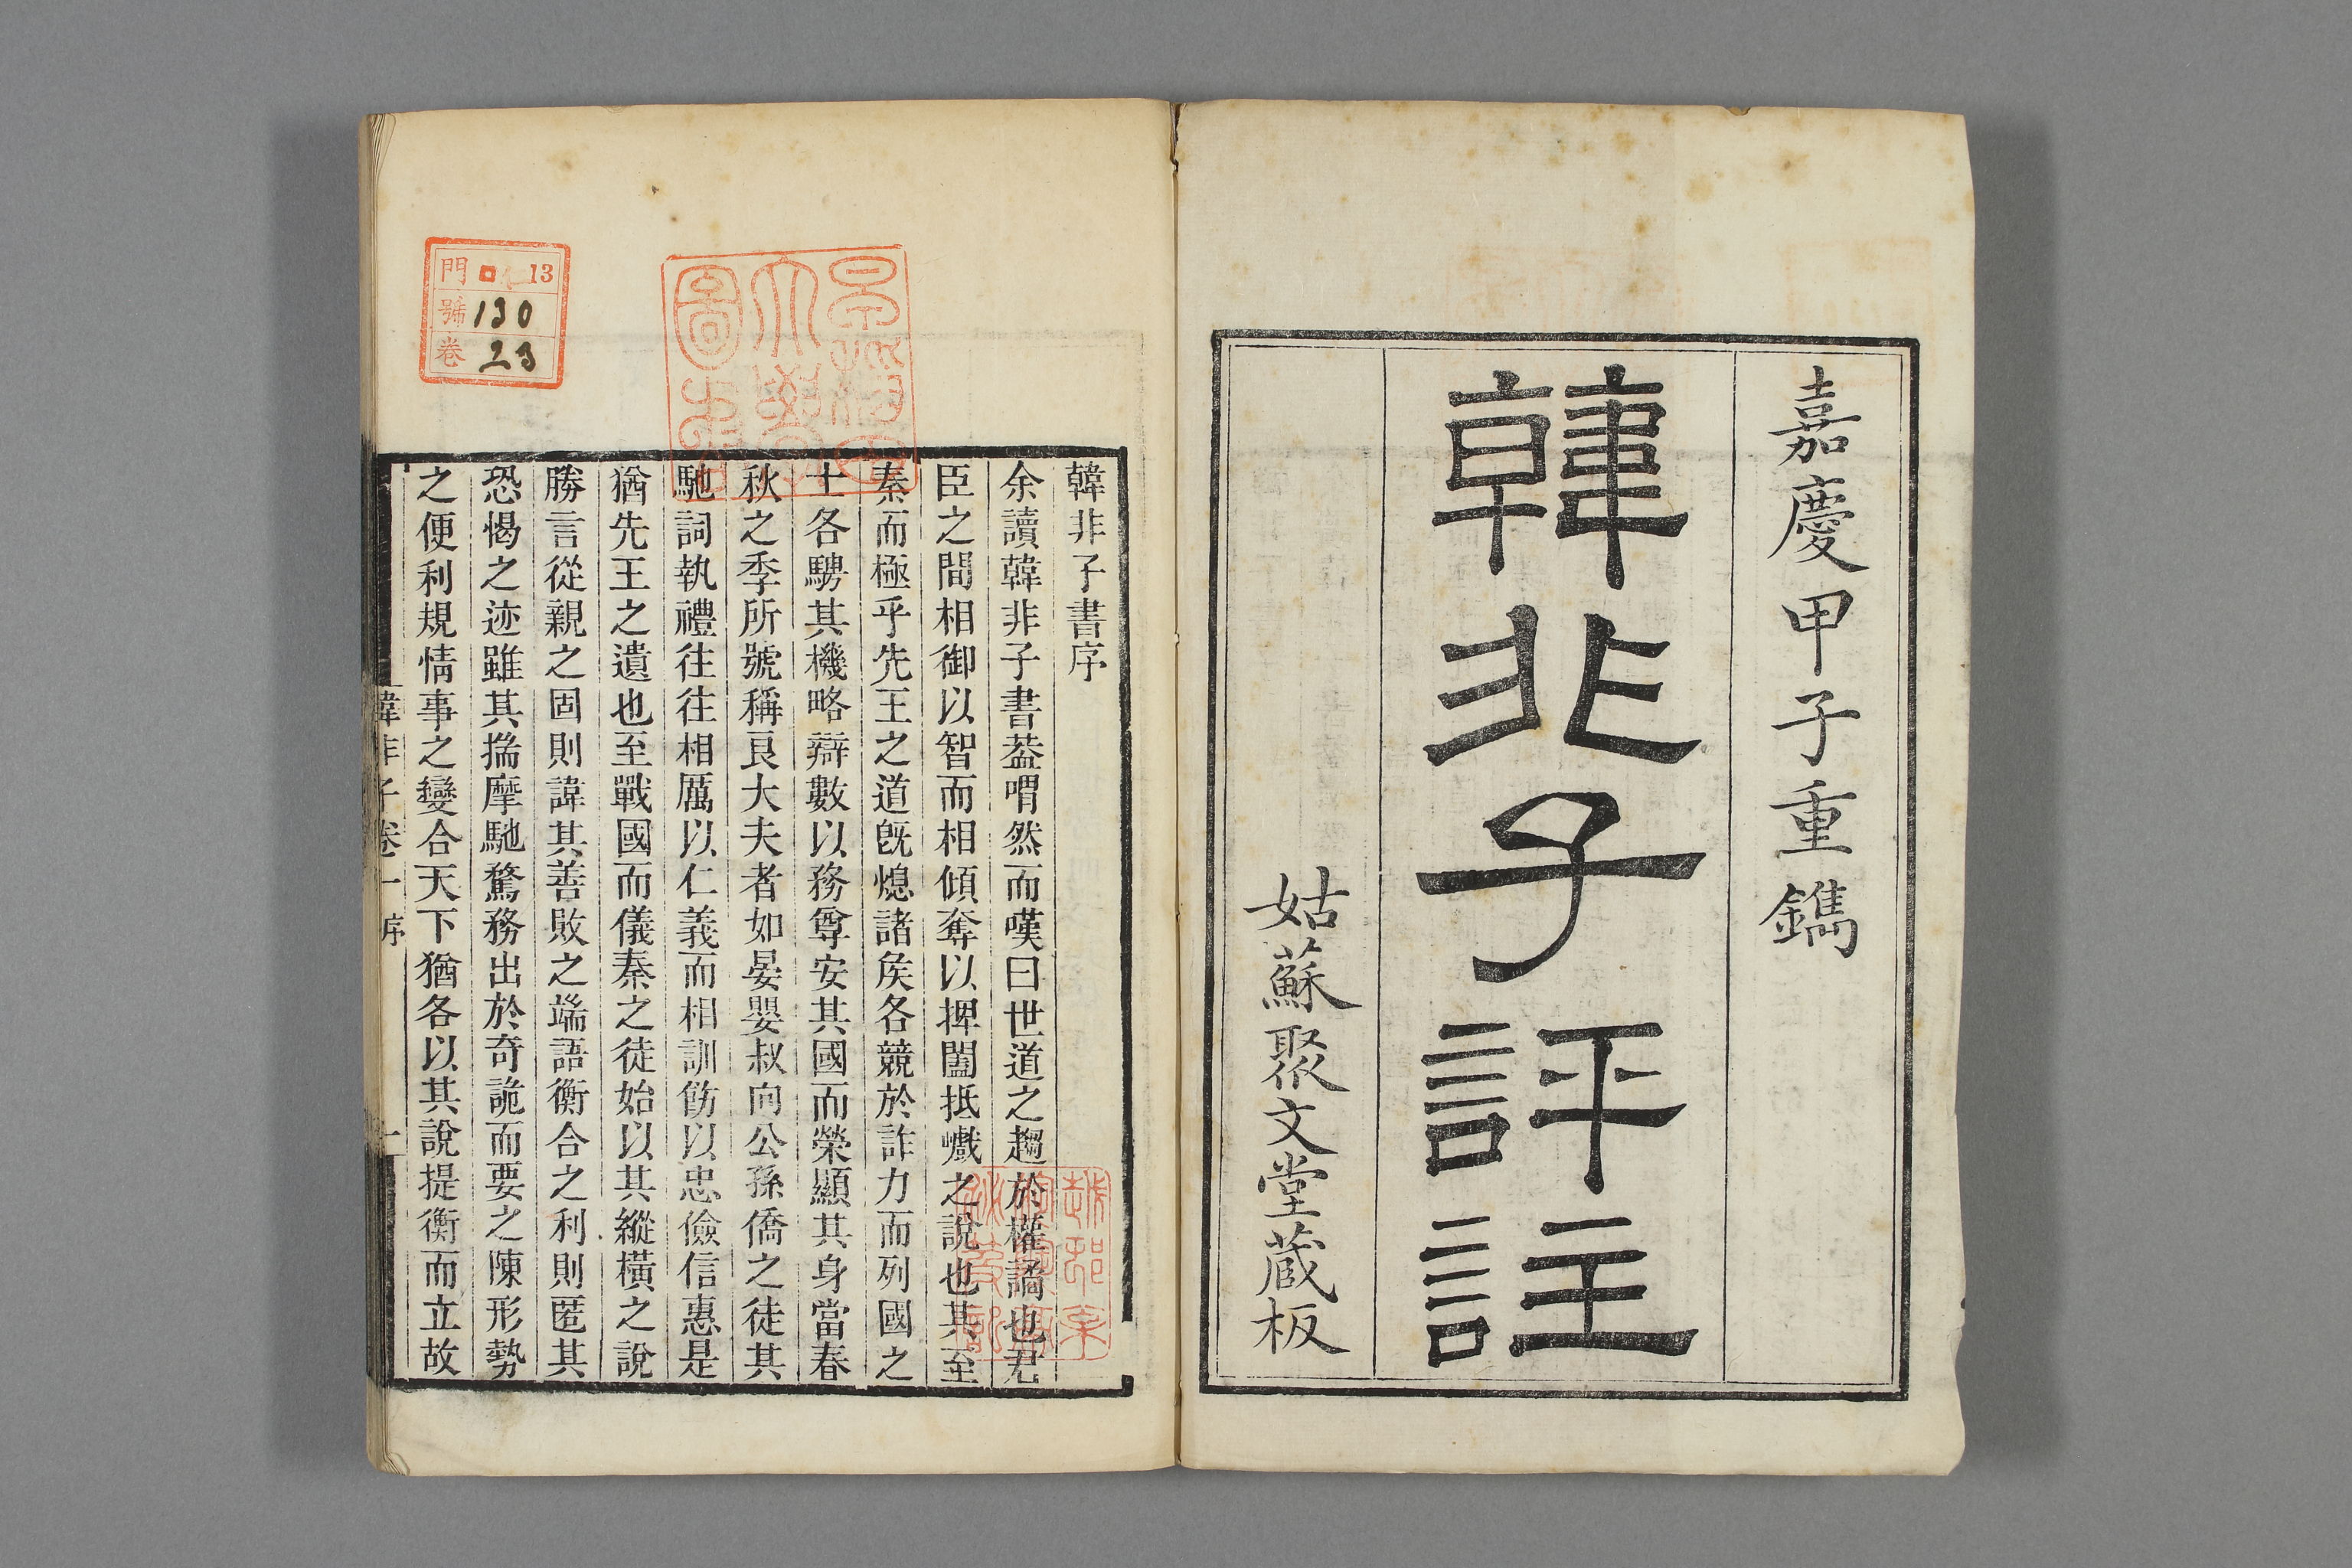 嘉慶甲子重鐫
韓非子評註
姑蘇聚文堂藏板
韓非子書序
余讀韓非子書葢喟然而嘆曰世道之趨於權譎也君
臣之間相御以智而相傾奪以捭闔抵巇之說也其至
秦而極乎先王之道旣熄諸矦各競於詐力而列國之
士各騁其機略辯數以務尊安其國而榮顯其身當春
秋之季所號稱良大夫者如晏嬰叔向公孫僑之徒其
馳詞執禮往往相厲以仁義而相訓飭以忠儉信惠是
猶先王之遺也至戰國而儀秦之徒始以其縱橫之說
勝言從親之固則諱其善敗之端語衡合之利則匿其
恐愒之迹雖其揣摩馳騖務出於奇詭而要之陳形勢
之便利規情事之變合天下猶各以其說提衡而立故
韓非子卷一 序
一
門 13
號 130
卷 23